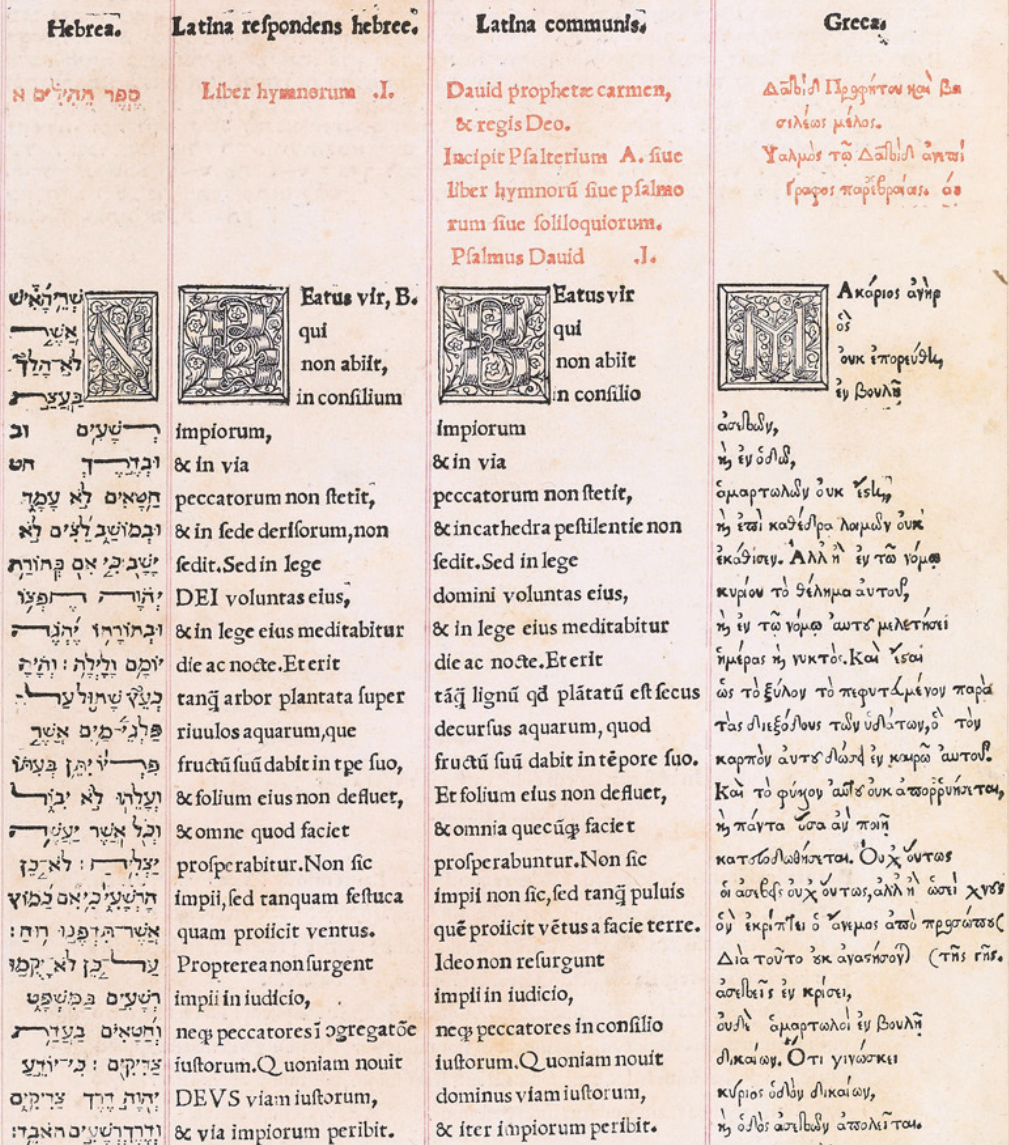 Hebrea.
ספר תהילים א
אשרי האיש
אשר
לא הלך
בעצת
רשעים וב
ובדרך חט
חטאים לא עמד
ובמושב לצים לא
ישב: כי אם בתורת
יהוה חפצו
ובתורתו יהגה
יומם ולילה: והיה
כעץ שתול על
פלגי מים אשר
פריו יתן בעתו
ועלהו לא יבול
וכל אשר יעשה
יצליח: לא כן
הרשעים כי אם כמוץ
אשר תדפנו רוח:
על כן לא יקמו
רשעים במשפט
וחטאים בעדת
צדיקים: כי יודע
יהוה דרך צדיקים
ודרך רשעים תאבד:
Latina reſpondens hebreę.
Liber hymnorum .I.
BEatus vir, B.
qui
non abiit,
in conſilium
impiorum,
& in via
peccatorum non ſtetit,
& in ſede deriſorum, non
ſedit. Sed in lege
DEI voluntas eius,
& in lege eius meditabitur
die ac nocte. Et erit
tanq̃ arbor plantata ſuper
riuulos aquarum, que
fructũ ſuũ dabit in tp̃e ſuo,
& folium eius non defluet,
& omne quod faciet
proſperabitur. Non ſic
impii, ſed tanquam feſtuca
quam proiicit ventus.
Propterea non ſurgent
impii in iudicio,
neqꝫ peccatores ĩ ↄgregatõe
iuſtorum. Quoniam nouit
DEVS viam iuſtorum,
& via impiorum peribit.
Latina communis.
Dauid prophetæ carmen,
& regis Deo.
Incipit Pſalterium A. ſiue
liber hymnorũ ſiue pſalmo
rum ſiue ſoliloquiorum.
Pſalmus Dauid .I.
BEatus vir
qui
non abiit
in conſilio
impiorum
& in via
peccatorum non ſtetit,
& in cathedra peſtilentie non
ſedit. Sed in lege
domini voluntas eius,
& in lege eius meditabitur
die ac nocte. Et erit
tãq̃ lignũ qd̃ plãtatũ eſt ſecus
decurſus aquarum, quod
fructũ ſuũ dabit in tẽpore ſuo.
Et folium eius non defluet,
& omnia quecũqꝫ faciet
proſperabuntur. Non ſic
impii non ſic, ſed tanq̃ puluis
quẽ proiicit vẽtus a facie terre.
Ideo non reſurgunt
impii in iudicio,
neqꝫ peccatores in conſilio
iuſtorum. Quoniam nouit
dominus viam iuſtorum,
& iter impiorum peribit.
Greca.
Δαβὶδ Προφήτου καὶ βα
σιλέως μέλος.
Ψαλμὸς τῷ Δαβὶδ ἀνεπί
γραφος παρ' ἑβραίας. ἀυ
ΜΑκάριος ἀνὴρ
ὃς
ὀυκ ἐπορεύθη,
ἐν βουλῇ
ἀσεβῶν,
κὴ ἐν ὁδῶ,
ἁμαρτολῶν ὀυκ ἔστη,
κὴ ἐπὶ καθέδρα λοιμῶν ὀυκ
ἐκάθισεν. Ἀλλ' ἢ ἐν τῶ νόμω
κυρίου τὸ θέλημα ἀυτοῦ,
κὴ ἐν τῶ νόμω ἀυτοῦ μελετήσει
ἡμέρας κὴ νυκτὸς. Καὶ ἔσται
ὡς τὸ ξύλον τὸ πεφυτευμένον παρὰ
τὰς διεξόδους τῶν ὑδάτων, ὃ τὸν
καρπὸν ἀυτοῦ δώσει ἐν καιρῶ ἀυτοῦ.
Καὶ τὸ φύλλον ἀυτοῦ ὀυκ ἀπορρυήσεται,
κὴ πάντα ὅσα ἂν ποιῇ
κατευοδωθήσεται. Ὀυχ ὅυτως
ὁι ἀσεβεῖς ὀυχ ὅυτως, ἀλλ' ἢ ὡσεὶ χνοῦς
ὃν ἐκρίπτει ὁ ἄνεμος ἀπὸ προσώπου (
Διὰ τοῦτο ὀυκ ἀναστήσονται (τῆς γῆς.
ἀσεβεῖς ἐν κρίσει,
ὀυδὲ ἁμαρτωλοὶ ἐν βουλῇ
δικαίων. Ὅτι γινώσκει
κύριος ὁδὸν δικαίων,
κὴ ὁδὸς ἀσεβῶν ἀπολεῖται.